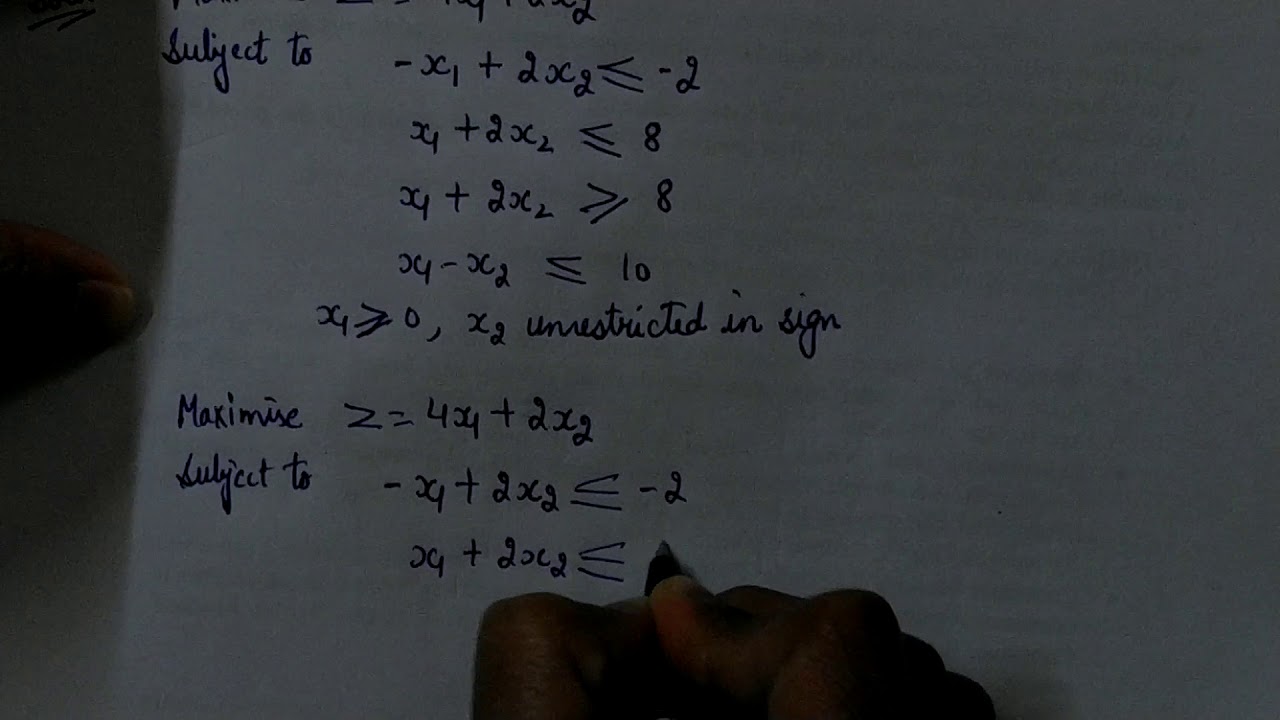 Subject to -x₁ + 2x₂ ≤ -2
x₁ + 2x₂ ≤ 8
x₁ + 2x₂ ≥ 8
x₁ - x₂ ≤ 10
x₁ ≥ 0, x₂ unrestricted in sign
Maximise Z = 4x₁ + 2x₂
Subject to -x₁ + 2x₂ ≤ -2
x₁ + 2x₂ ≤